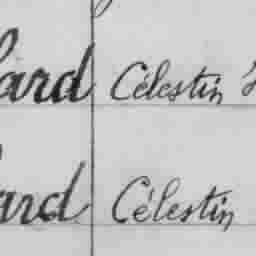 ard Célestin
ard Célestin